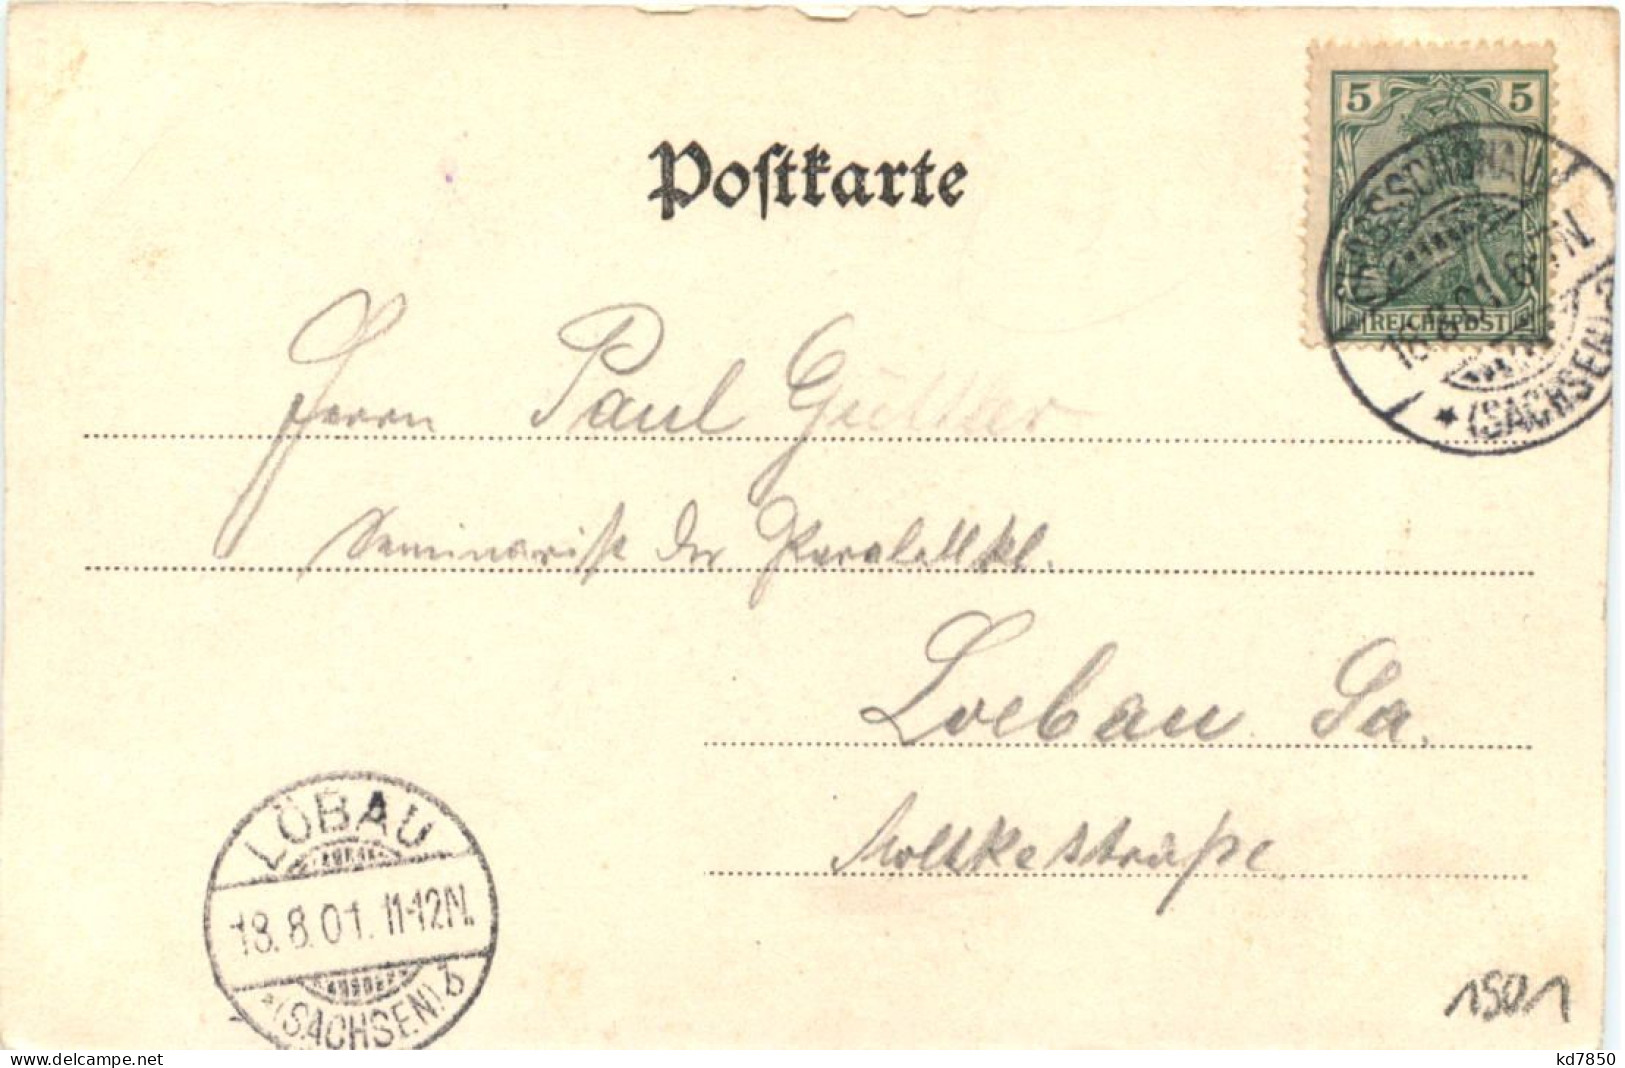 Postkarte
5 5
REICHSPOST
GROSSSCHÖNAU
18.8.01. 6-7N.
* (SACHSEN) a
Herrn Paul Güttler
Seminarist der Parallelkl.
Loebau Sa.
Moltkestraße
LÖBAU
18.8.01. 11-12N.
*(SACHSEN) b
1501
kd7850